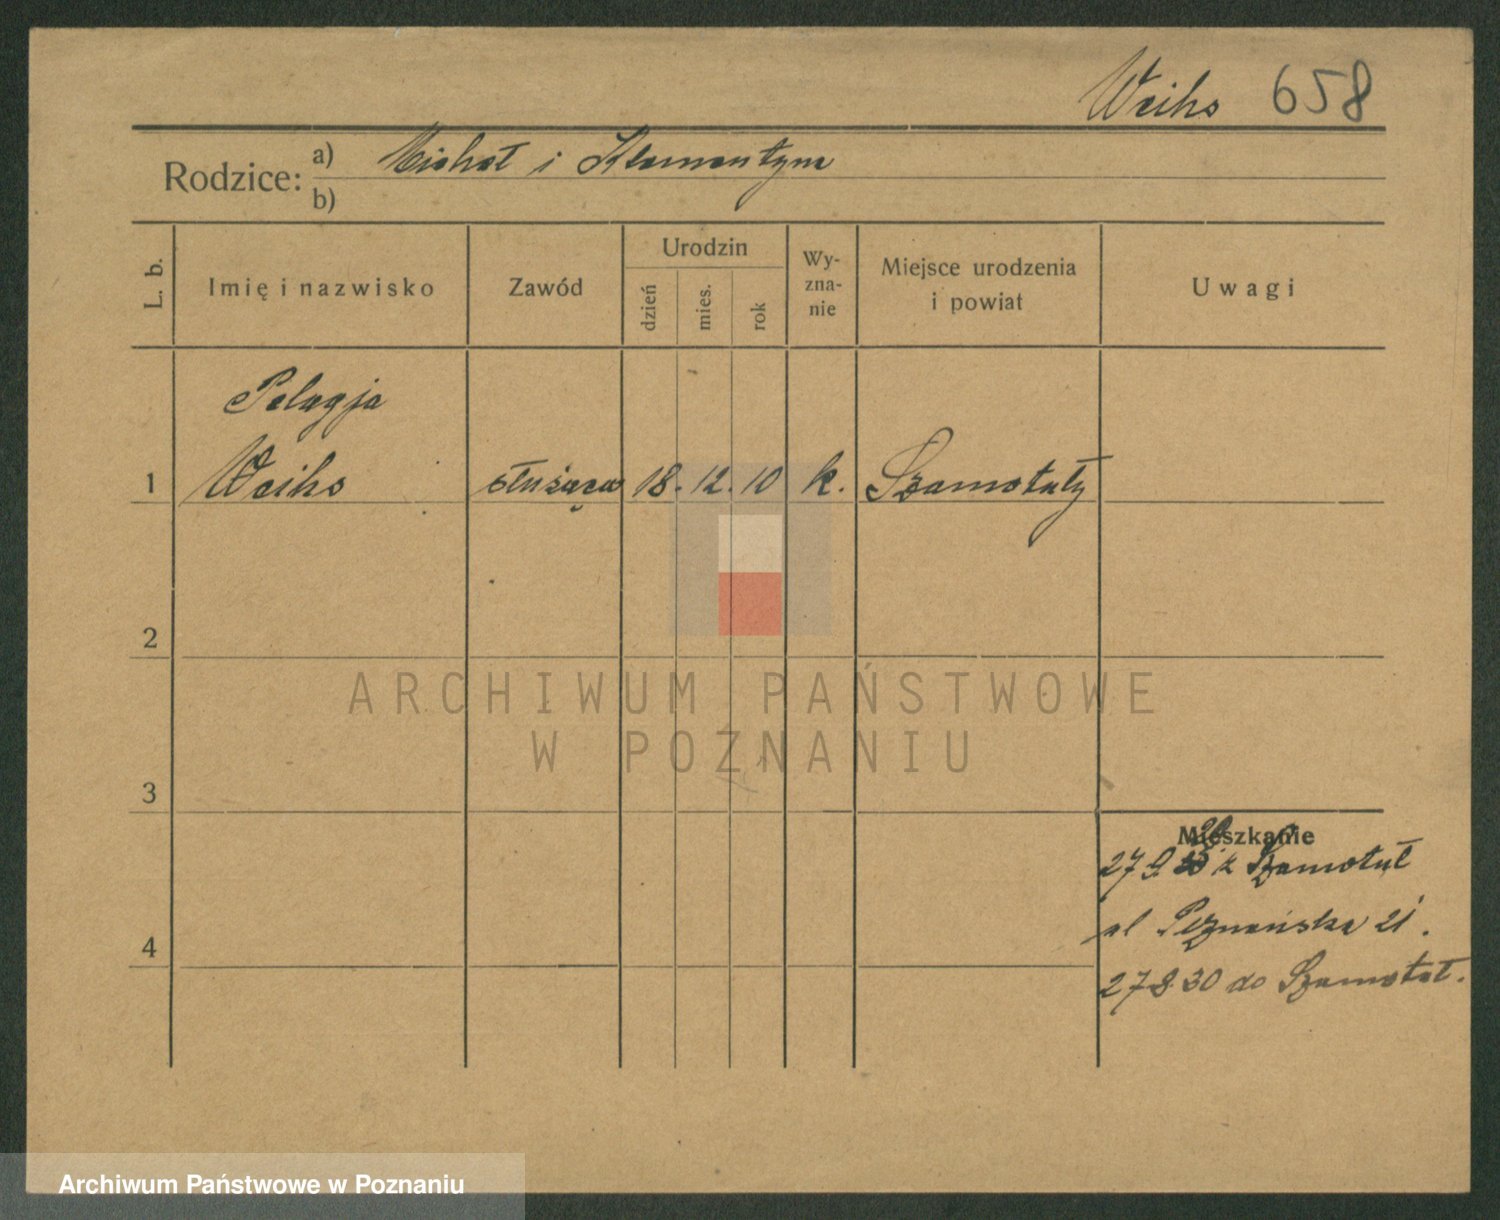 Weihs 658
Rodzice: a) Michał i Klementyna
b)
L. b.
Imię i nazwisko
Zawód
Urodzin
dzień
mies.
rok
Wy-
zna-
nie
Miejsce urodzenia
i powiat
Uwagi
Pelagja
1 Weihs służąca 18. 12. 10 k. Szamotuły
2
ARCHIWUM PAŃSTWOWE
W POZNANIU
3
Mieszkanie
27 9 z Szamotuł
ul Poznańska 21.
4
27 8 30 do Szamotuł.
Archiwum Państwowe w Poznaniu